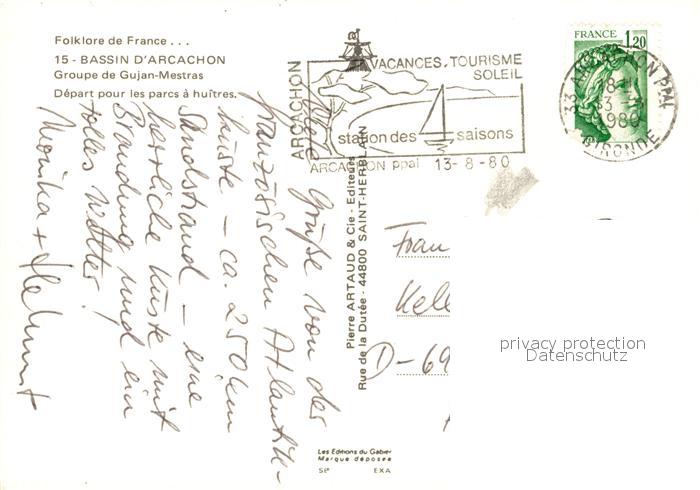 Folklore de France . . .
15 - BASSIN D'ARCACHON
Groupe de Gujan-Mestras
Départ pour les parcs à huîtres.
ARCACHON
VACANCES. TOURISME
SOLEIL
station des saisons
ARCACHON ppal 13-8-80
FRANCE 1,20
33 ARCACHON PPAL
1980
GIRONDE
Viele Grüße von der
französischen Atlantik-
küste - ca. 250 km
Sandstrand - eine
herrliche Küste mit
Brandung und ein
tolles Wetter!
Monika + Helmut
Pierre ARTAUD & Cie - Editeurs
Rue de la Dutée - 44800 SAINT-HERBLAIN
Frau
Kell
D-69
privacy protection
Datenschutz
Les Editions du Gabier
Marque déposée
EXA